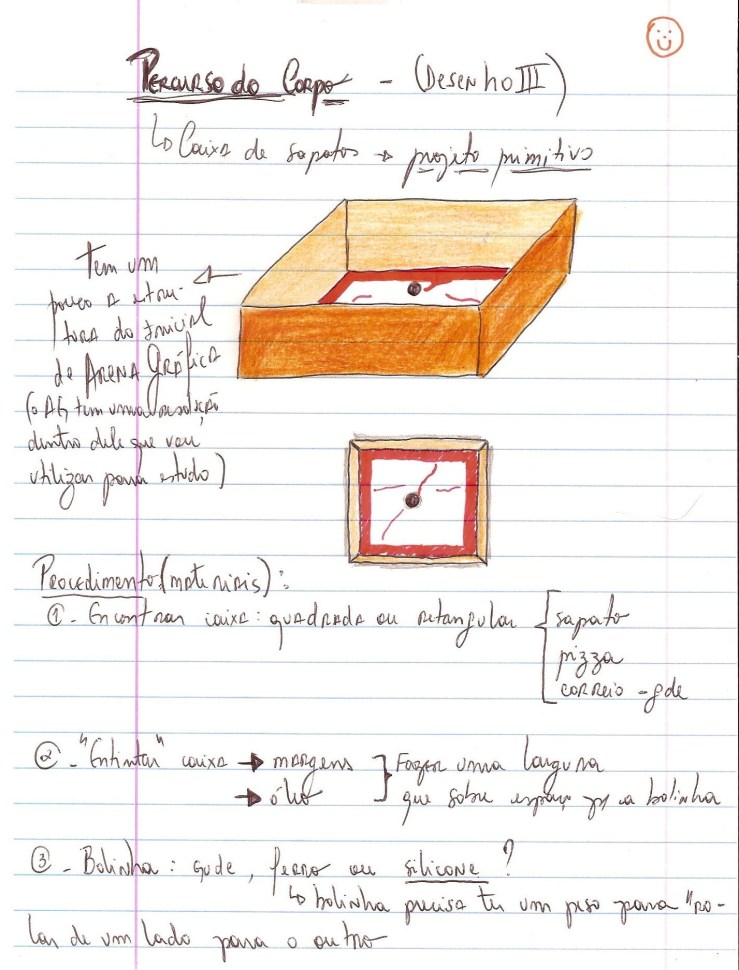 Percurso do Corpo - (Desenho III)
↳ Caixa de sapatos → projeto primitivo
Tem um
pouco a estru-
tura do inicial
de Arena Gráfica
(o AG tem uma resolução
dentro dele que vou
utilizar para estudo)
Procedimento (materiais):
① - Encontrar caixa: quadrada ou retangular
sapato
pizza
correio - gde
② - "Entintar" caixa → margens
→ óleo
Fazer uma largura
que sobre espaço p/ a bolinha
③ - Bolinha: gude, ferro ou silicone?
↳ bolinha precisa ter um peso para "ro-
lar de um lado para o outro